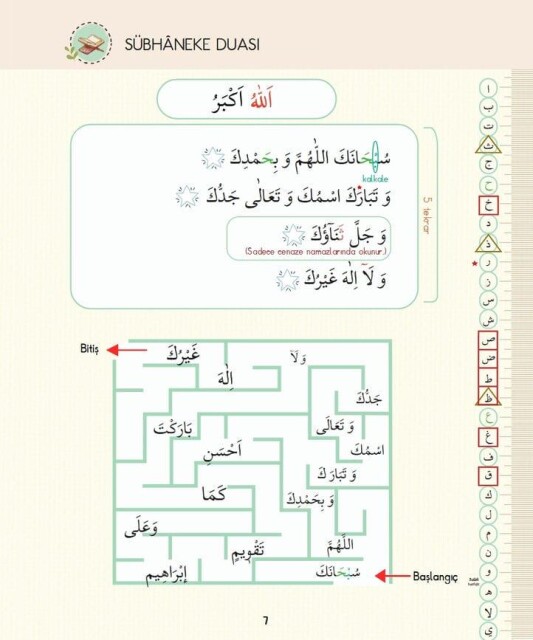 SÜBHÂNEKE DUASI
اَللّٰهُ اَكْبَرُ
سُبْحَانَكَ اللّٰهُمَّ وَ بِحَمْدِكَ
kalkale
وَ تَبَارَكَ اسْمُكَ وَ تَعَالٰى جَدُّكَ
وَ جَلَّ ثَنَاؤُكَ
(Sadece cenaze namazlarında okunur.)
وَ لَآ اِلٰهَ غَيْرُكَ
5 tekrar
Bitiş
غَيْرُكَ
وَ لَآ
اِلٰهَ
جَدُّكَ
بَارَكْتَ
وَ تَعَالَى
اَحْسَنِ
اسْمُكَ
وَ تَبَارَكَ
كَمَا
وَ بِحَمْدِكَ
وَعَلَى
تَقْوِيمٍ
اللّٰهُمَّ
اِبْرَاهِيم
سُبْحَانَكَ
Başlangıç
7
ا
ب
ت
ث
ج
ح
خ
د
ذ
ر
ز
س
ش
ص
ض
ط
ظ
ع
غ
ف
ق
ك
ل
م
ن
و
ه
لا
ي